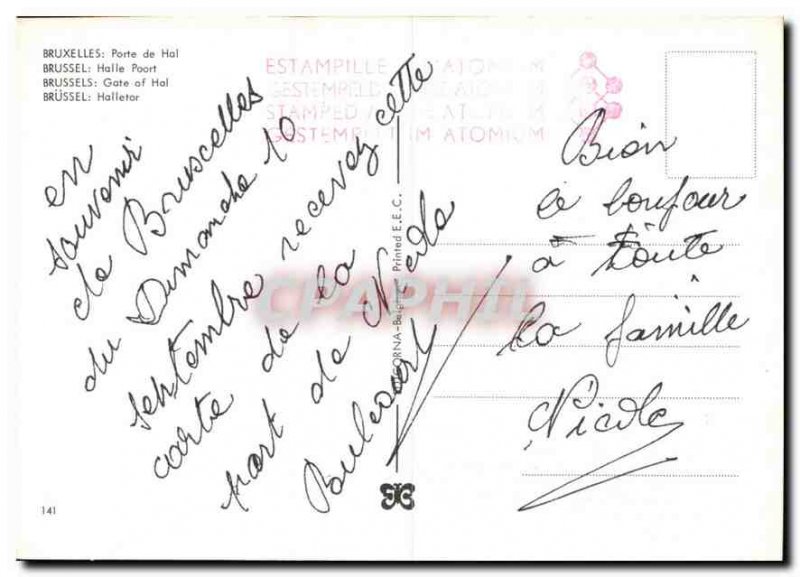 BRUXELLES: Porte de Hal
BRUSSEL: Halle Poort
BRUSSELS: Gate of Hal
BRÜSSEL: Halletor
ESTAMPILLE A L'ATOMIUM
GESTEMPELD IN HET ATOMIUM
STAMPED AT THE ATOMIUM
GESTEMPELT IM ATOMIUM
en
souvenir
de Bruscelles
du Dimanche 10
septembre recevez cette
carte de la
part de Nicole
Boulcourt
CORNA-Belgium Printed E.E.C.
CPAPHIL
Bien
le bonjour
à toute
la famille
Nicole
141